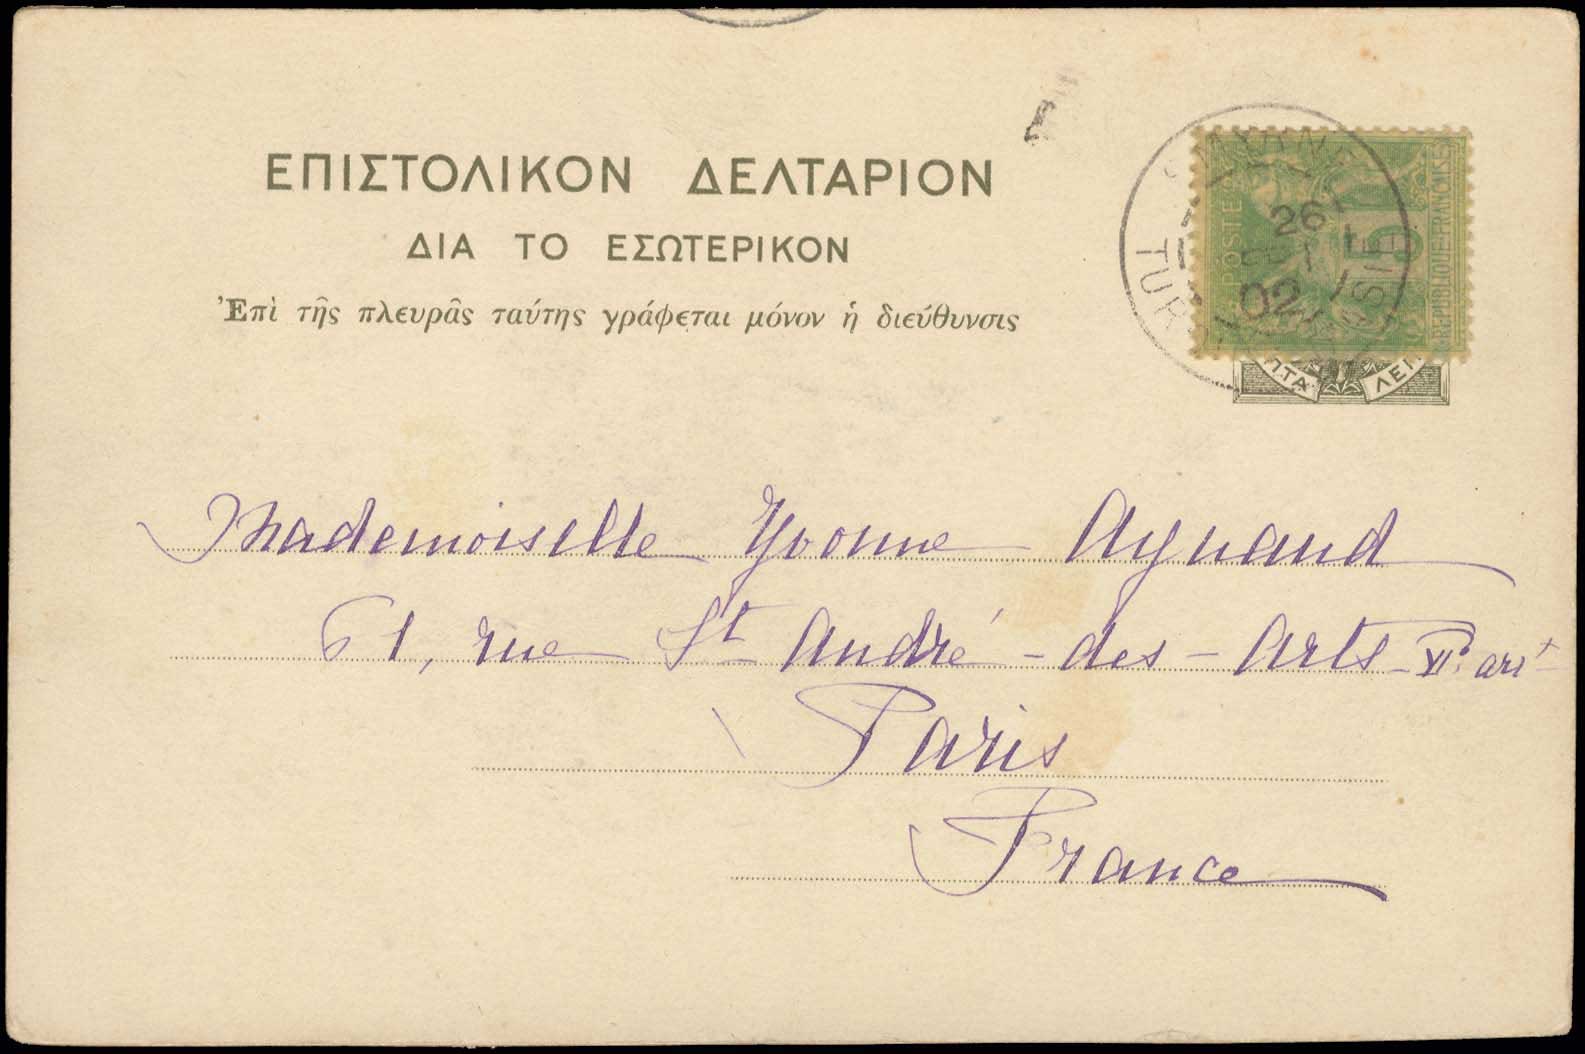 ΕΠΙΣΤΟΛΙΚΟΝ ΔΕΛΤΑΡΙΟΝ
ΔΙΑ ΤΟ ΕΣΩΤΕΡΙΚΟΝ
Ἐπὶ τῆς πλευρᾶς ταύτης γράφεται μόνον ἡ διεύθυνσις
26
02
TUR
ASIE
POSTE
5
REPUBLIQUE FRANÇAISE
Mademoiselle Yvonne Aynaud
61, rue St André-des-Arts VIe arrt
Paris
France